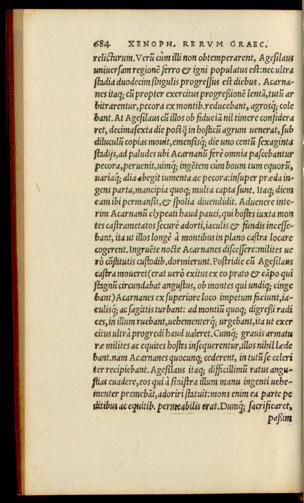 684 XENOPH. RERUM GRAEC.
relicturum. Verũ cùm illi non obtemperarent, Agesilaus
uniuersam regionẽ ferro & igni populatus est: nec ultra
stadia duodecim singulis progressus est diebus. Acarna-
nes itaq; cũ propter exercitus progressionẽ lentã, tutũ ar
bitrarentur, pecora ex montib. reducebant, agrosq́; cole
bant. At Agesilaus cũ illos ob fiduciã nil timere considera
ret, decimasexta die postq̃ in hosticũ agrum uenerat, sub
diluculũ copias mouit, emensisq́; die uno centũ sexaginta
stadijs, ad paludes ubi Acarnanũ ferè omnia pascebantur
pecora, peruenit, uimq́; ingẽtem cùm boum tum equorũ,
uariaq́; alia abegit iumenta ac pecora: insuper præda in-
gens parta, mancipia quoq; multa capta sunt. Itaq; diem
eam ibi permansit, & spolia diuendidit. Aduenere inte-
rim Acarnanũ clypeati haud pauci, qui hostes iuxta mon
tes castrametatos securè adorti, iaculis & fundis incesse-
bant, ita ut illos longè à montibus in plano castra locare
cogerent. Ingruẽte nocte Acarnanes discessere: milites ue
rò cõstitutis custodib. dormierunt. Postridie cũ Agesilaus
castra moueret (erat uerò exitus ex eo prato & cãpo qui
stagnũ circundabat angustus, ob montes qui undiq; cinge
bant) Acarnanes ex superiore loco impetum faciunt, ia-
culisq́; ac sagittis turbant: ad montiũ quoq; digressi radi
ces, in illum ruebant, uehementerq́; urgebant, ita ut exer
citus ultrà progredi haud ualeret. Cumq́; grauis armatu
ræ milites ac equites hostes insequerentur, illos nihil læde
bant. nam Acarnanes quocunq; cederent, in tutũ se celeri
ter recipiebant. Agesilaus itaq; difficillimũ ratus angu-
stias euadere, eos qui à sinistra illum manu ingenti uehe-
menter premebãt, adoriri statuit: mons enim ea parte pe
ditibus ac equitib. permeabilis erat. Dumq́; sacrificaret,
passim